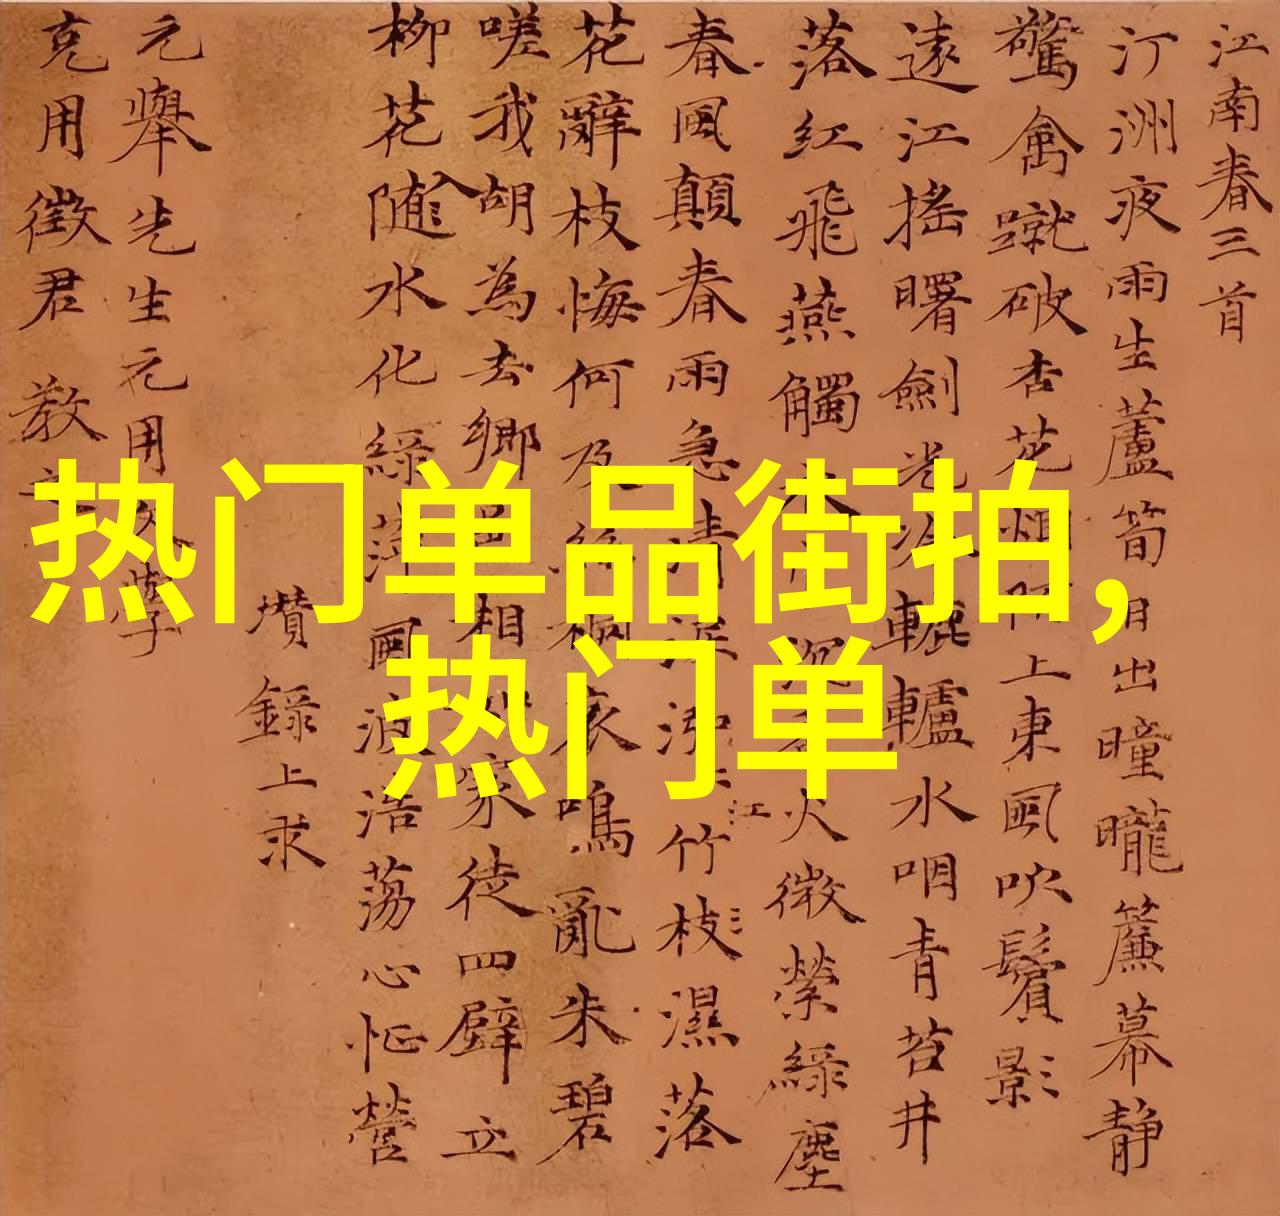 江南春三首
汀洲夜雨生蘆筍日出曈曨簾幕靜
驚禽蹴破杏花烟陌上東風吹鬢影
遠江搖曙劍光冷轆轤水咽青苔井
落紅飛燕觸火微縈綠塵
春風顛春雨急清淚泓江竹枝濕落
花辭枝悔何及哀鳴亂朱碧
嗟我胡為去鄉相家徒四壁立
柳花隨水化綠萍風波浩蕩心怔營
瓚錄上求
元舉先生元用文學
克用徵君教
热门单品街拍,
热门单